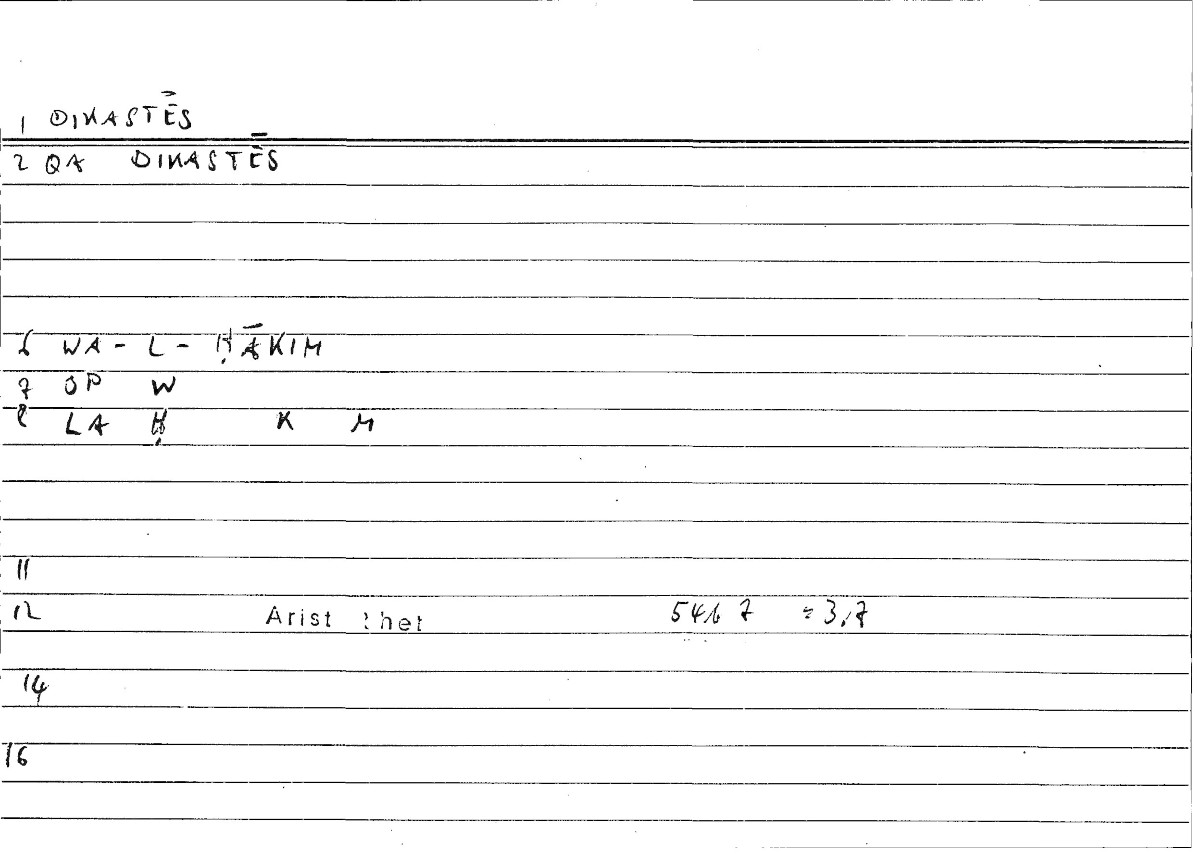 1 DIKASTĒS
2 QA DIKASTĒS
6 WA - L - ḤĀKIM
7 OP W
8 LA Ḥ K M
11
12 Arist rhet 54b7 = 3,7
14
16